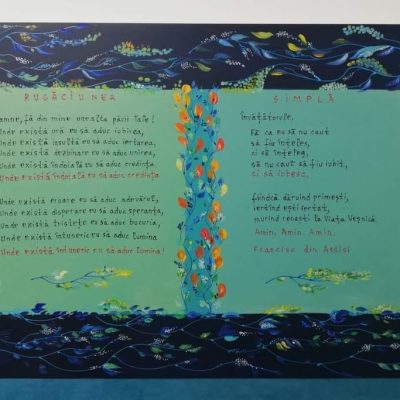 RUGĂCIUNEA
Doamne, fă din mine unealta păcii Tale!
Unde există ură eu să aduc iubirea,
Unde există insultă eu să aduc iertarea,
Unde există dezbinare eu să aduc unirea,
Unde există îndoială eu să aduc credința
Unde există îndoială eu să aduc credința
Unde există eroare eu să aduc adevărul,
Unde există disperare eu să aduc speranța,
Unde există tristețe eu să aduc bucuria,
Unde există întuneric eu să aduc Lumina
Unde există întuneric eu să aduc Lumina!
SIMPLĂ
Învățătorule,
Fă ca eu să nu caut
să fiu înțeles,
ci să înțeleg,
să nu caut să fiu iubit,
ci să iubesc,
fiindcă dăruind primești,
iertând ești iertat,
murind renaști la Viața Veșnică.
Amin. Amin. Amin.
Francisc din Assisi